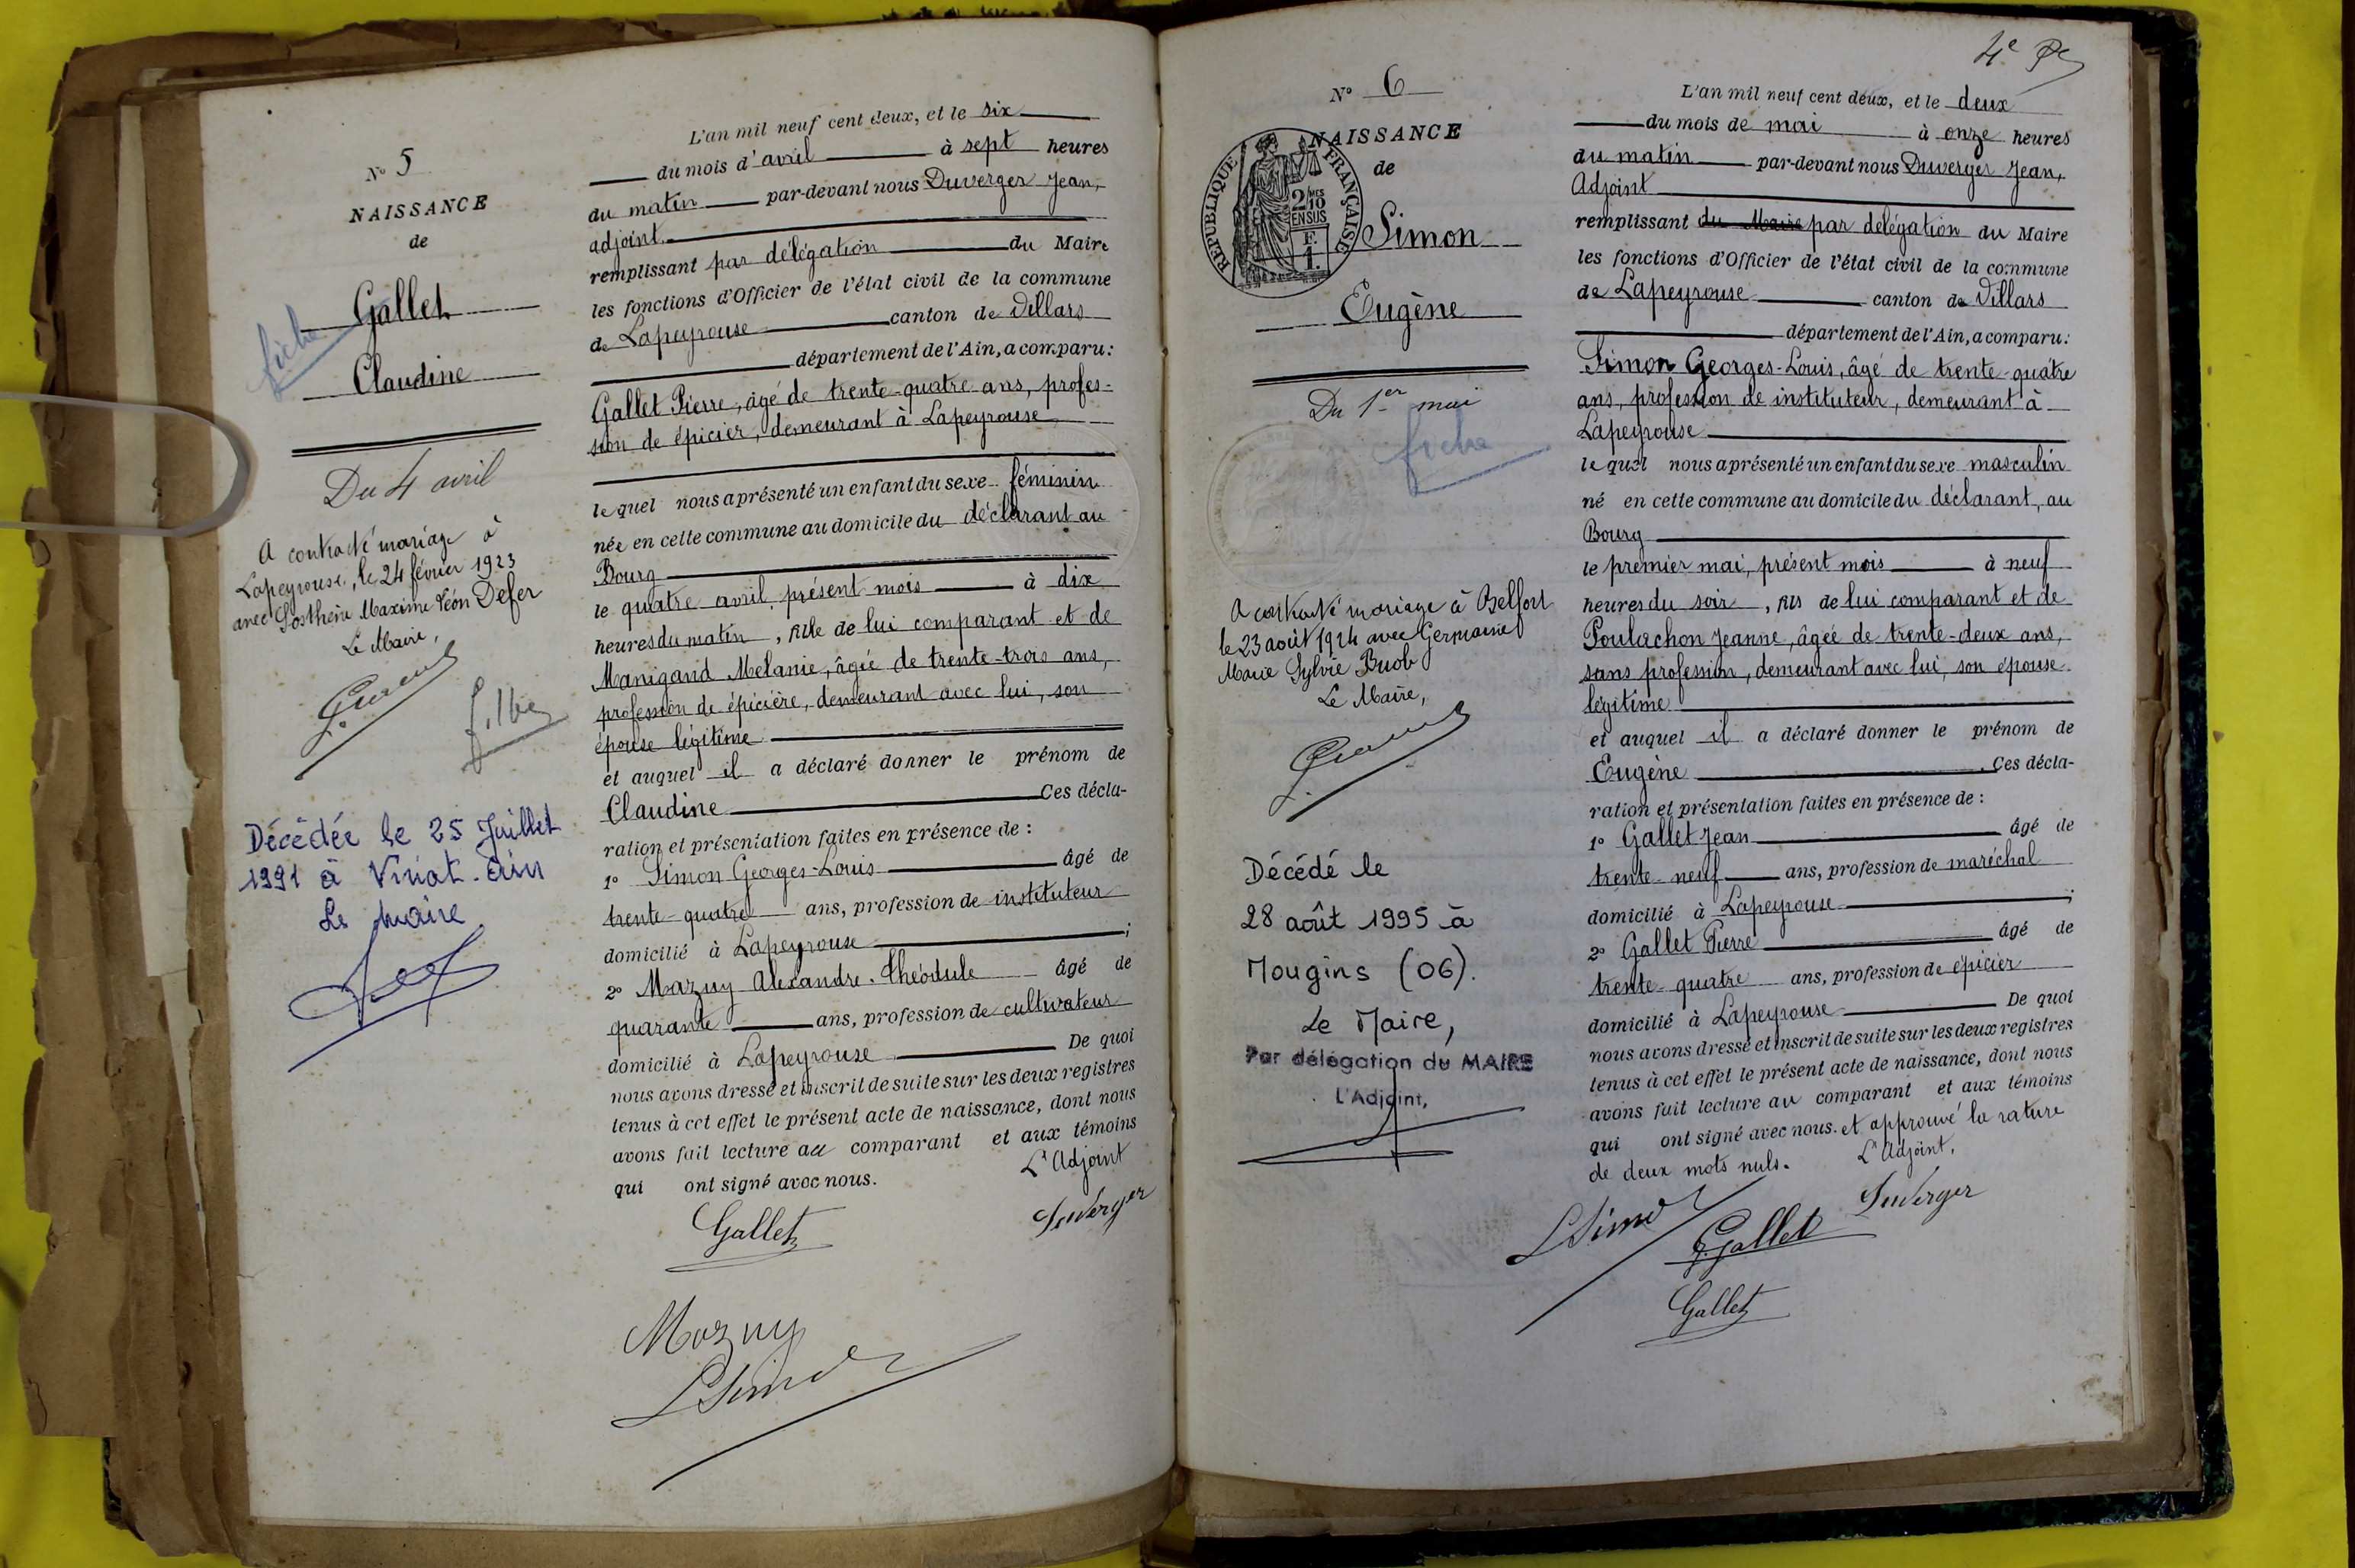 N° 5
NAISSANCE
de
Gallet
fiche
Claudine
Du 4 avril
A contracté mariage à
Lapeyrouse, le 24 février 1923
avec Sosthène Maxime Léon Defer
Le Maire,
Décédée le 25 Juillet
1991 à Viriat. Ain
Le Maire
L'an mil neuf cent deux, et le six
du mois d'avril à sept heures
du matin par-devant nous Duverger Jean,
adjoint
remplissant par délégation du Maire
les fonctions d'Officier de l'état civil de la commune
de Lapeyrouse canton de Villars
département de l'Ain, a comparu:
Gallet Pierre, âgé de trente-quatre ans, profes-
sion de épicier, demeurant à Lapeyrouse
lequel nous a présenté un enfant du sexe féminin
née en cette commune au domicile du déclarant au
Bourg
le quatre avril, présent mois à dix
heures du matin, fille de lui comparant et de
Manigand Melanie, âgée de trente-trois ans,
profession de épicière, demeurant avec lui, son
épouse légitime
et auquel il a déclaré donner le prénom de
Claudine Ces décla-
ration et présentation faites en présence de :
1° Simon Georges-Louis âgé de
trente-quatre ans, profession de instituteur
domicilié à Lapeyrouse ;
2° Mazuy Alexandre-Théodule âgé de
quarante ans, profession de cultivateur
domicilié à Lapeyrouse De quoi
nous avons dressé et inscrit de suite sur les deux registres
tenus à cet effet le présent acte de naissance, dont nous
avons fait lecture au comparant et aux témoins
qui ont signé avec nous. L'Adjoint
Gallet Duverger
Mazuy
LSimon
4e
N° 6
NAISSANCE
de
RÉPUBLIQUE FRANÇAISE
2 MES
10
EN SUS
F.
1.
Simon
Eugène
Du 1er mai
fiche
A contracté mariage à Belfort
le 23 août 1924 avec Germaine
Marie Sylvie Buob
Le Maire,
Décédé le
28 août 1995 à
Mougins (06).
Le Maire,
Par délégation du MAIRE
L'Adjoint,
L'an mil neuf cent deux, et le deux
du mois de mai à onze heures
du matin par-devant nous Duverger Jean,
Adjoint
remplissant du Maire par délégation du Maire
les fonctions d'Officier de l'état civil de la commune
de Lapeyrouse canton de Villars
département de l'Ain, a comparu:
Simon Georges-Louis, âgé de trente-quatre
ans, profession de instituteur, demeurant à
Lapeyrouse
lequel nous a présenté un enfant du sexe masculin
né en cette commune au domicile du déclarant, au
Bourg
le premier mai, présent mois à neuf
heures du soir, fils de lui comparant et de
Poulachon Jeanne, âgée de trente-deux ans,
sans profession, demeurant avec lui, son épouse
légitime
et auquel il a déclaré donner le prénom de
Eugène. Ces décla-
ration et présentation faites en présence de :
1° Gallet Jean âgé de
trente-neuf ans, profession de maréchal
domicilié à Lapeyrouse ;
2° Gallet Pierre âgé de
trente-quatre ans, profession de épicier
domicilié à Lapeyrouse De quoi
nous avons dressé et inscrit de suite sur les deux registres
tenus à cet effet le présent acte de naissance, dont nous
avons fait lecture au comparant et aux témoins
qui ont signé avec nous. et approuvé la rature
de deux mots nuls. L'Adjoint,
LSimon Duverger
Gallet
Gallet